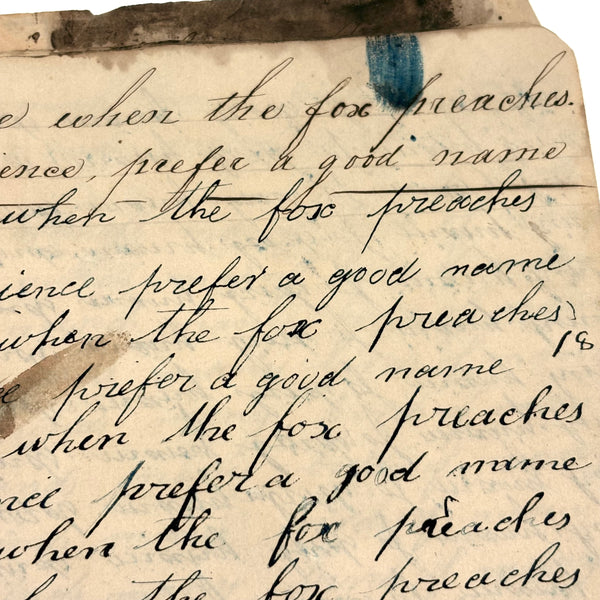 e when the fox preaches.
ience, prefer a good name
when the fox preaches
ience prefer a good name
when the fox preaches
18
ce prefer a good name
when the fox preaches
nce prefer a good name
when the fox preaches
the fox preaches